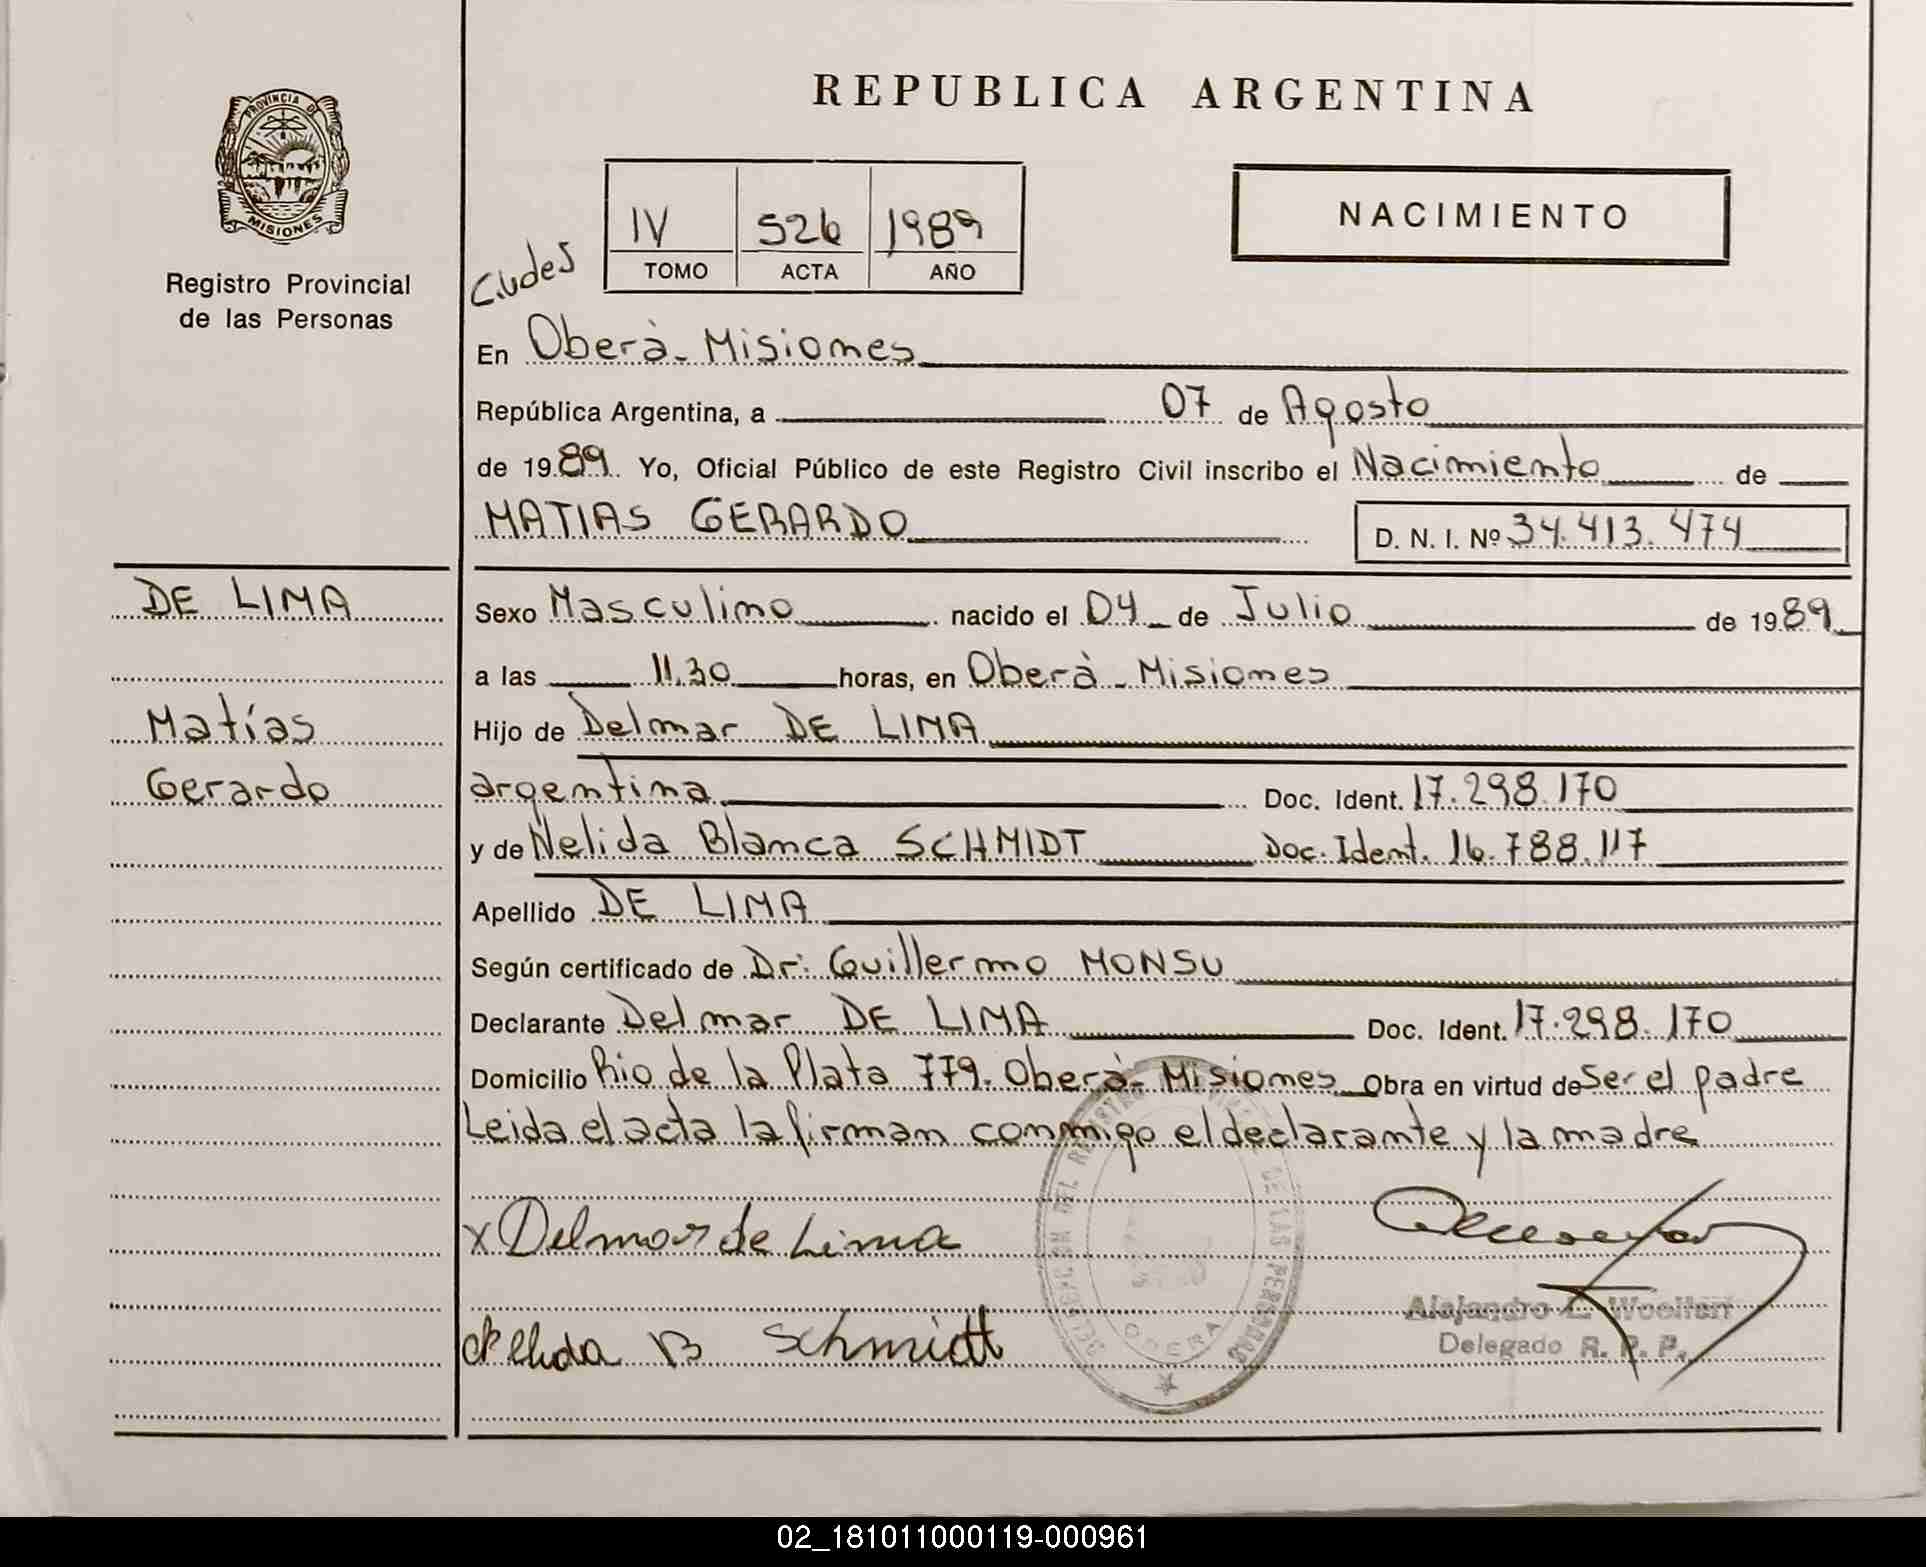 PROVINCIA DE
MISIONES
Registro Provincial
de las Personas
REPUBLICA ARGENTINA
IV 526 1989
TOMO ACTA AÑO
NACIMIENTO
En Oberà - Misiones
República Argentina, a 07 de Agosto
de 1989 Yo, Oficial Público de este Registro Civil inscribo el Nacimiento de
MATIAS GERARDO D. N. I. Nº 34.413.474
DE LIMA
Matías
Gerardo
Sexo Masculino nacido el 04 de Julio de 1989
a las 11.30 horas, en Oberà - Misiones
Hijo de Delmar DE LIMA
argentina Doc. Ident. 17.298.170
y de Nelida Blanca SCHMIDT Doc. Ident. 16.788.117
Apellido DE LIMA
Según certificado de Dr: Guillermo MONSU
Declarante Delmar DE LIMA Doc. Ident. 17.298.170
Domicilio Rio de la Plata 779. Oberà - Misiones Obra en virtud de Ser el padre
Leida el acta la firman conmigo el declarante y la madre
x Delmar de Lima
Nelida B Schmidt
DELEGACION DEL REGISTRO PROVINCIAL DE LAS PERSONAS
OBERA
Alejandro
Delegado R. P. P.
02_181011000119-000961